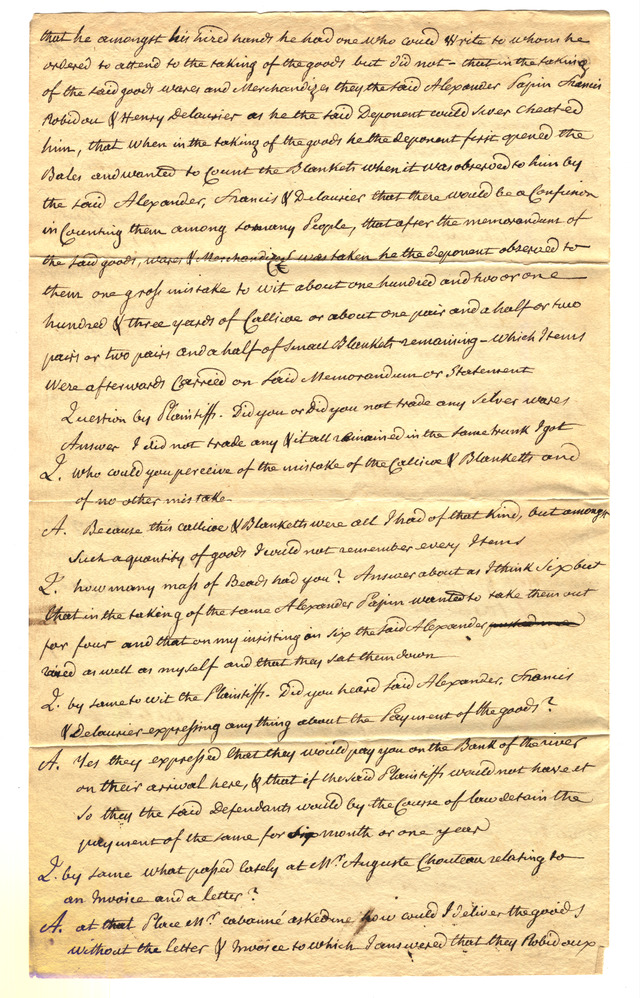 that he amongst his hired hands he had one who could write to whom he
ordered to attend to the taking of the goods but did not – that in the taking
of the said goods wares and Merchandizes they the said Alexander Papin Francis
Robidou & Henry Delaurier as he the said Deponent would Swer cheated
him, that when in the taking of the goods he the deponent first opened the
Bales and wanted to Count the Blankets when it was observed to him by
the said Alexander, Francis & Delaurier that there would be a Confusion
in Counting them among so many People, that after the memorandum of
the said goods, wares & Merchandizes was taken he the deponent observed to
them one gross mistake to wit about one hundred and two or one
hundred & three yards of Callicoe or about one pair and a half or two
pairs or two pairs and a half of Small Blankets remaining – which Items
Were afterwards Carried on Said Memorandum or Statement
Question by Plaintiffs. Did you or Did you not trade any Silver wares
Answer I did not trade any & it all remained in the same trunk I got
Q. who could you perceive of the mistake of the Callicoe & Blanketts and
of no other mistake
A. Because this callicoe & Blanketts were all I had of that Kind, but amongst
Such a quantity of goods I could not remember every Items
Q. how many mass of Beads had you? Answer about as I think Six but
that in the taking of the same Alexander Papin wanted to take them out
for four and that on my insisting on six the said Alexander
as well as myself and that they sat them down
Q. by same to wit the Plaintiffs. Did you heard said Alexander, Francis
& Delaurier expressing any thing about the Payment of the goods?
A. Yes they expressed that they would pay you on the Bank of the river
on their arrival here, & that if the said Plaintiffs would not have it
So they the said Defendants would by the Course of law detain the
payment of the same for six month or one year
Q. by same what passed lately at Mr. Auguste Chouteau relating to
an Invoice and a letter?
A. at that Place Mr. Cabanné asked me how could I deliver the goods
without the letter & Invoice to which I answered that they Robidoux –